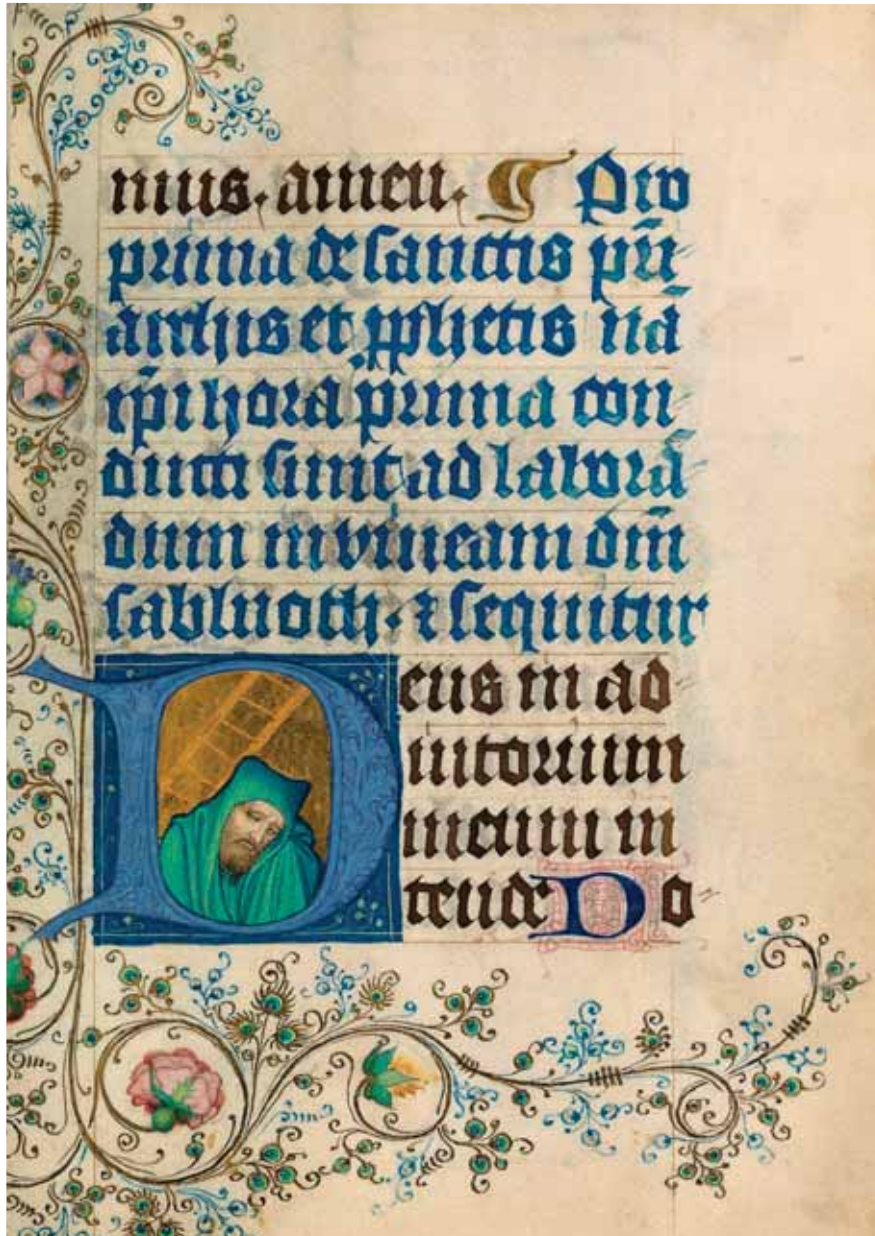 nius. amen. ¶ Pro
prima de sanctis pri
archis et pphetis nā
xp̄i hora prima con
ducti sunt ad laborā
dum in vineam dn̄i
sabluoth. ⁊ sequitur
Deus in ad
iutorium
meum in
tende Do